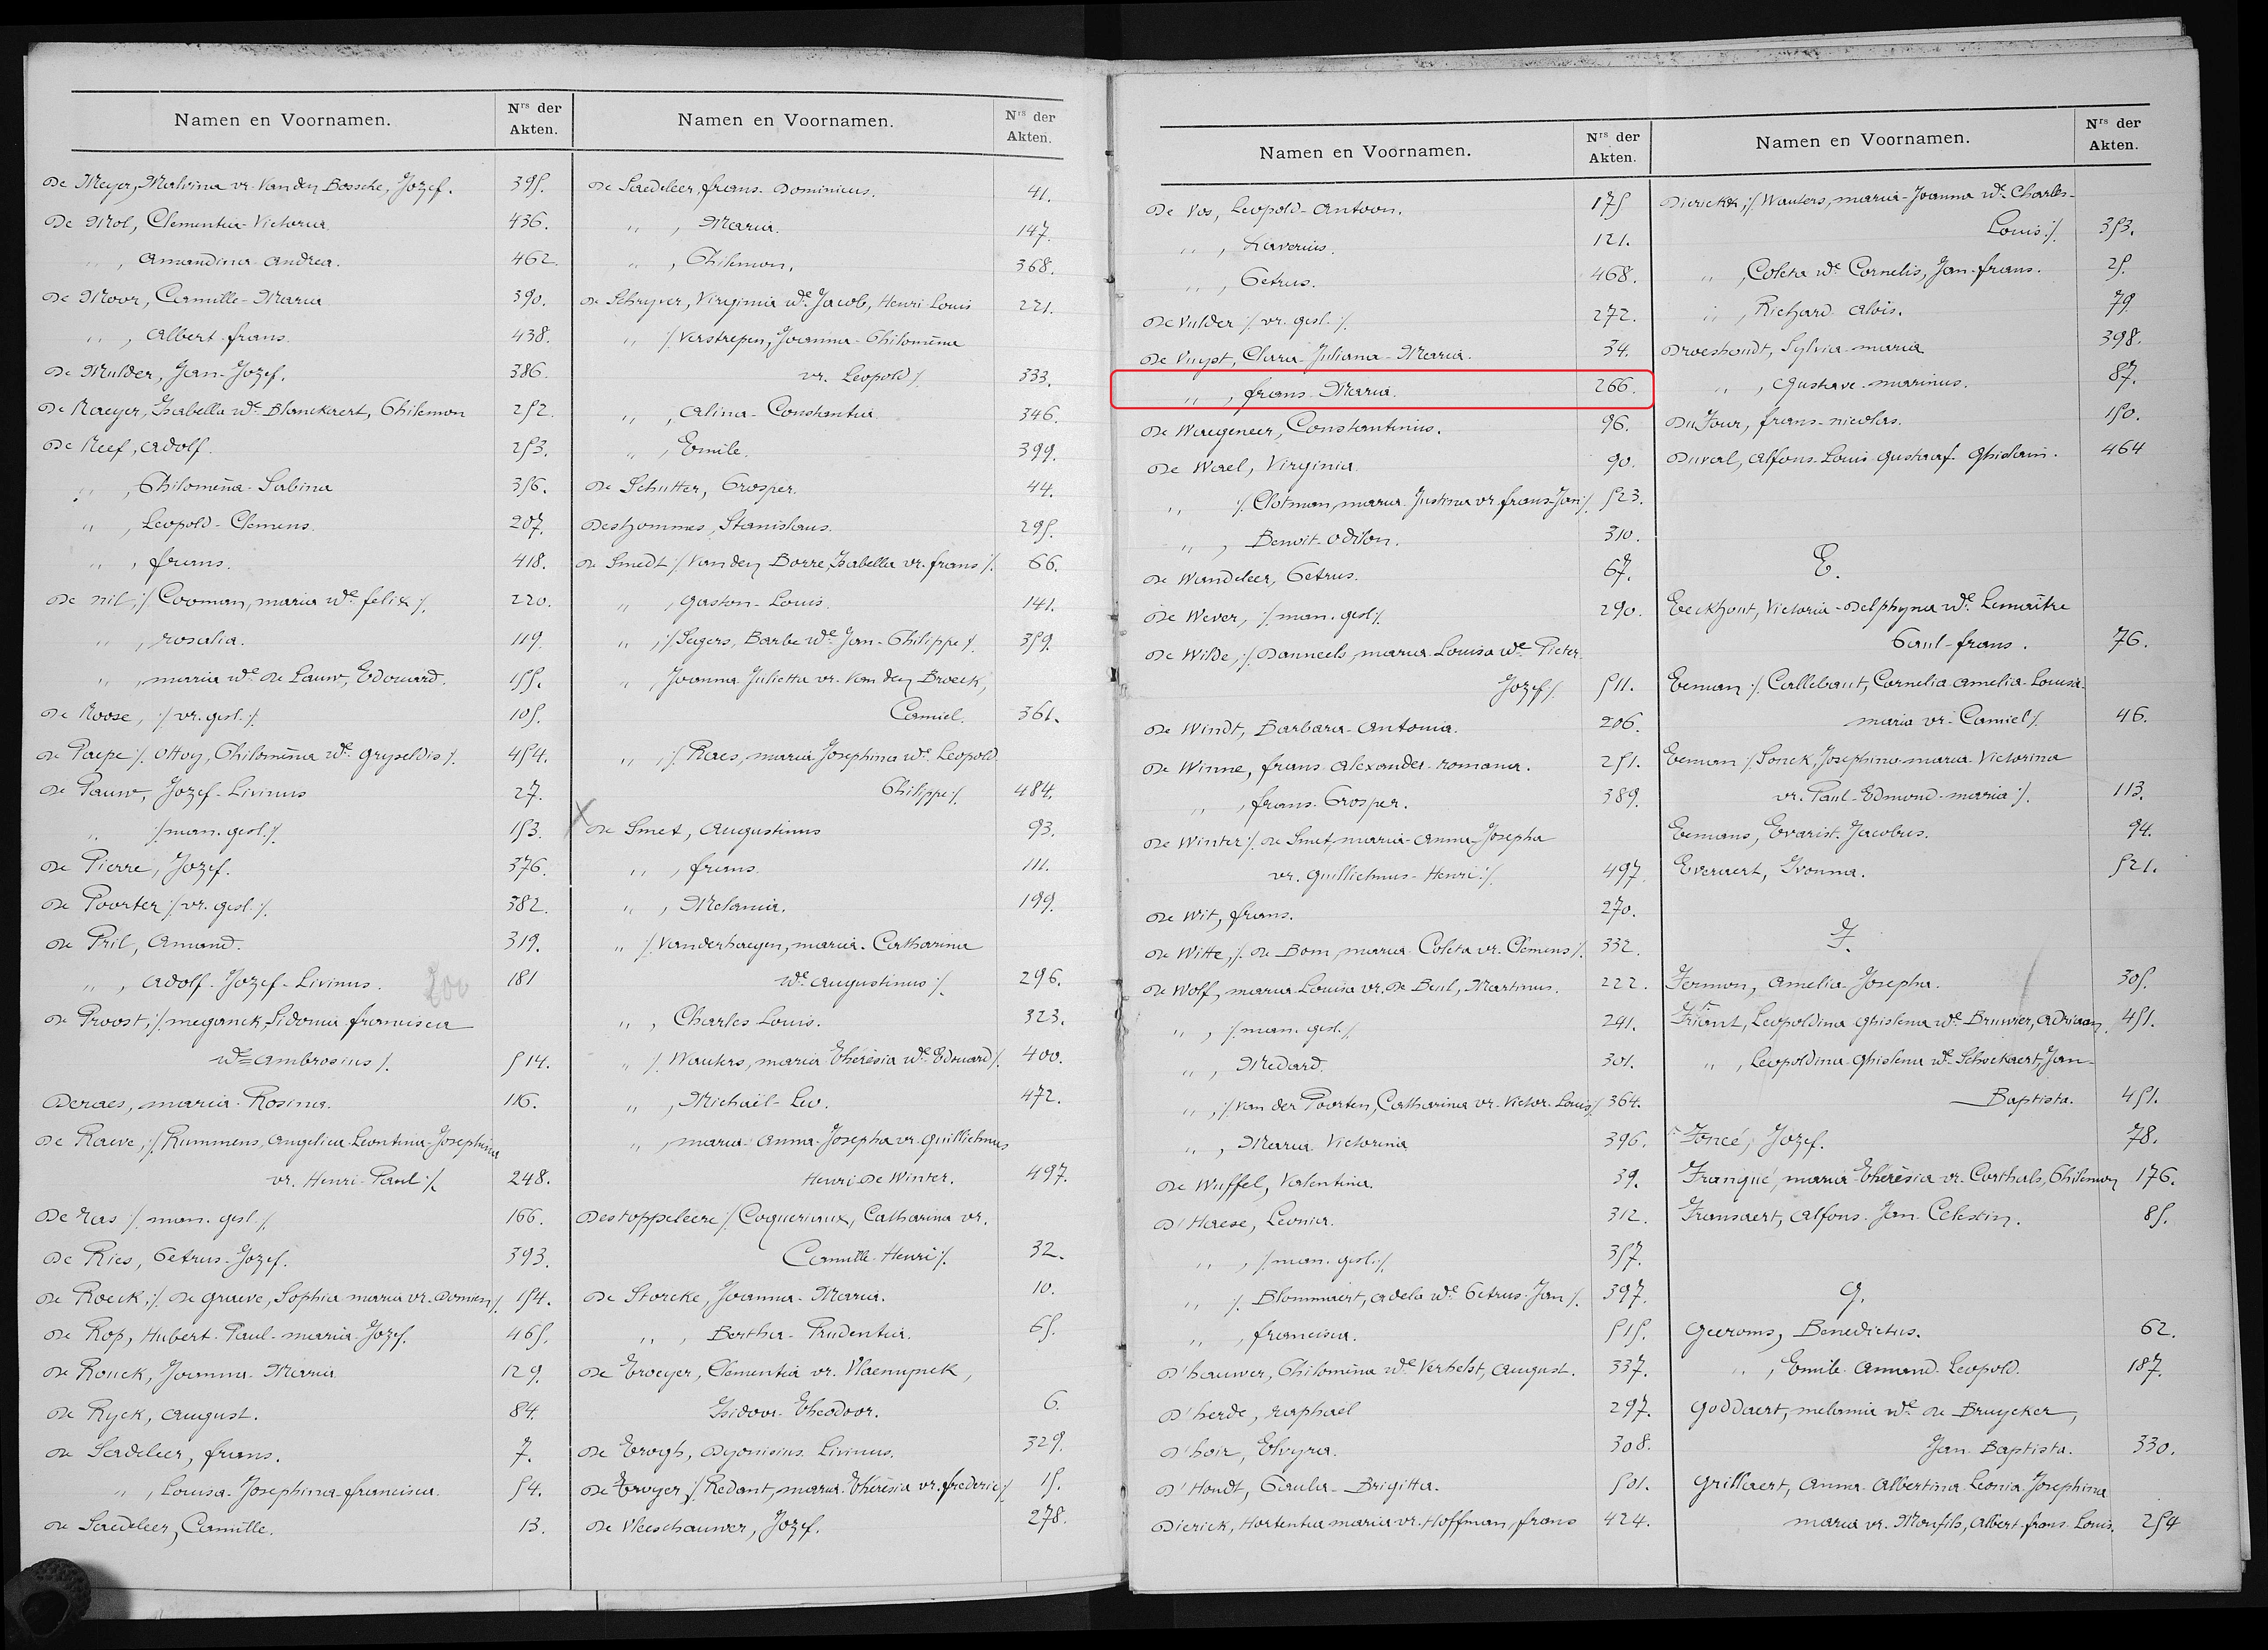 Namen en Voornamen. Nrs der Akten.
De Meyer, Malvina vr. Van den Bossche, Jozef. 395.
De Mol, Clementia-Victoria 436.
,, , Amandina-Andrea. 462.
De Moor, Camille-Maria 390.
,, , Albert-frans. 438.
De Mulder, Jan-Jozef. 386.
De Naeyer, Isabella We Blanckaert, Philemon 252.
De Neef, Adolf. 253.
,, , Philomena-Sabina 356.
,, , Leopold-Clemens. 207.
,, , frans. 418.
De Nil, :/ Cooman, maria We felix /. 220.
,, , rosalia. 119.
,, , maria We de Pauw, Edouard. 155.
De Noose, :/ vr. gesl. /. 105.
De Paepe /. Ottoy, Philomena We Gryseldis /. 454.
De Pauw, Jozef-Livinus 27.
,, :/ man. gesl. /. 153.
De Pierre, Jozef. 376.
De Poorter :/ vr. gesl. /. 382.
De Pril, Amand. 319.
,, , Adolf-Jozef-Livinus. 181
200
De Proost, :/ meganck, Sidonia francisca
We Ambrosius /. 514.
Deraes, maria-Rosina. 116.
De Raeve, :/ Rummens, Angelica-Leontina-Josephina
vr. Henri-Paul /. 248.
De Ras :/ man. gesl. /. 166.
De Ries, Petrus-Jozef. 393.
De Roeck, :/ de Graeve, Sophia maria vr. Domien /. 154.
De Rop, Hubert-Paul-maria-Jozef. 465.
De Rouck, Joanna-Maria 129.
De Ryck, August. 84.
De Sadeleer, frans. 7.
,, , Louisa-Josephina-francisca. 54.
De Saedeleer, Camille. 13.
Namen en Voornamen. Nrs der Akten.
De Saedeleer, frans-Dominicus. 41.
,, , Maria. 147.
,, , Philemon. 368.
De Schryver, Virginia We Jacob, Henri-Louis 221.
,, :/ Verstrepen, Joanna-Philomena
vr. Leopold /. 333.
,, , Alina-Constantia 346.
,, , Emile. 399.
De Schutter, Prosper. 44.
Deshommes, Stanislaus. 295.
De Smedt :/ Van den Borre, Isabella vr. frans /. 66.
,, , Gaston-Louis. 141.
,, , :/ Segers, Barbe We Jan-Philippe /. 359.
,, , Joanna Julietta vr. Van den Broeck,
Camiel. 361.
,, , :/ Raes, maria Josephina We Leopold
Philippe /. 484.
X De Smet, Augustinus 93.
,, , frans. 111.
,, , Melania. 199.
,, :/ Vanderhaegen, maria-Catharina
We Augustinus /. 296.
,, , Charles Louis. 323.
,, :/ Wauters, maria Theresia We Edouard /. 400.
,, , Michaël-Leo. 472.
,, , maria-Anna-Josepha vr. Guillielmus
Henri De Winter. 497.
Destoppeleere :/ Coqueriaux, Catharina vr.
Camille-Henri /. 32.
De Storcke, Joanna-Maria. 10.
,, , Bertha-Prudentia. 65.
De Troeyer, Clementia vr. Vlaemynck,
Isidoor-Theodoor. 6.
De Trogh, Dyonisius Livinus. 329.
De Troyer :/ Redant, maria-Theresia vr. frederic /. 15.
De Vleeschauwer, Jozef. 278.
Namen en Voornamen. Nrs der Akten.
De Vos, Leopold-Antoon. 175
,, , Xaverius. 121.
,, , Petrus. 468.
De Vulder :/ vr. gesl. /. 272.
De Vuyst, Clara-Juliana-Maria. 34.
,, , frans-Maria. 266.
De Waegeneer, Constantinus. 96.
De Wael, Virginia 90.
,, :/ Clotman, maria Justina vr. frans-Jan /. 523.
,, , Benoit-Odilon. 310.
De Wandeleer, Petrus. 67.
De Wever, :/ man. gesl. /. 290.
De Wilde, :/ Danneels, maria-Louisa We Pieter-
Jozef /. 511.
De Windt, Barbara-Antonia. 206.
De Winne, frans-Alexander-romana. 251.
,, , frans-Prosper. 389.
De Winter :/ de Smet, maria-Anna-Josepha
vr. Guillielmus-Henri /. 497.
De Wit, frans. 270.
De Witte, :/ de Bom, maria Coleta vr. Clemens /. 332.
De Wolf, maria-Louisa vr. De Beul, Martinus. 222.
,, , :/ man. gesl. /. 241.
,, , Medard. 301.
,, , :/ Van der Poorten, Catharina vr. Victor-Louis /. 364.
,, , Maria Victorina 396.
De Wuffel, Valentina. 39.
D'Haese, Leonia. 312.
,, , :/ man. gesl. /. 357.
,, :/ Blommaert, Adela We Petrus-Jan /. 397.
,, , francisca. 515.
D'hauwer, Philomena We Verhelst, August. 337.
D'herde, raphael 297.
D'hoir, Elvyra. 308.
D'Hondt, Paula-Brigitta. 501.
Dierick, Hortentia maria vr. Hoffman, frans 424.
Namen en Voornamen. Nrs der Akten.
Dierickx :/ Wauters, maria-Joanna We Charles-
Louis /. 353.
,, , Coleta We Cornelis, Jan-frans. 25.
,, , Richard-Aloïs. 79.
Droeshoudt, Sylvia-maria 398.
,, , Gustave-marinus. 87.
Du Four, frans-nicolas. 150.
Duval, Alfons-Louis-Gustaaf-Ghislain. 464
E.
Eeckhout, Victoria-Delphyna We Lemaître
Paul-frans. 76.
Eeman :/ Callebaut, Cornelia Amelia-Louisa-
maria vr. Camiel /. 46.
Eeman :/ Sonck, Josephina-maria-Victorina
vr. Paul-Edmond-maria /. 113.
Eemans, Evarist-Jacobus. 94.
Everaert, Ivonna. 521.
F.
Fermon, Amelia-Josepha. 305.
Friant, Leopoldina Ghislena We Bruwier, Adriaan, 451.
,, , Leopoldina-Ghislena We Schockaert, Jan-
Baptista. 451.
Foncé, Jozef. 78.
Franqué, maria-Theresia vr. Corthals, Philemon 176.
Fransaert, Alfons-Jan-Celestin. 85.
G.
Geeroms, Benedictus. 62.
,, , Emile-Amand-Leopold. 187.
Goddaert, melania We de Bruycker,
Jan-Baptista. 330.
Grillaert, Anna-Albertina-Leonia-Josephina
maria vr. Monfils, Albert-frans-Louis. 254